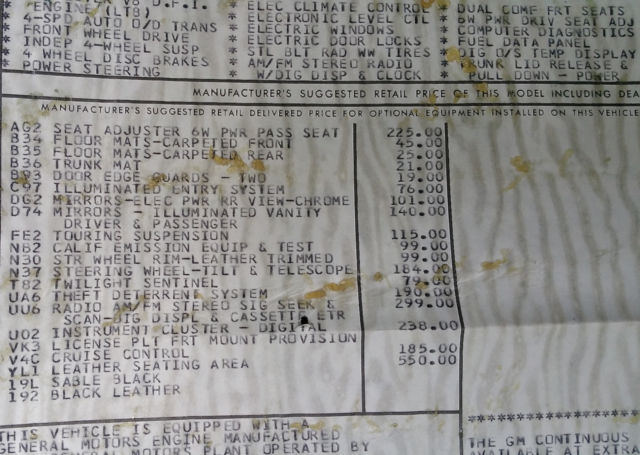 ENGINE (LT8) * ELEC CLIMATE CONTROL * DUAL COMF FRT SEATS
* 4-SPD AUTO O/D TRANS * ELECTRONIC LEVEL CTL * 6W PWR DRIV SEAT ADJ
* FRONT WHEEL DRIVE * ELECTRIC WINDOWS * COMPUTER DIAGNOSTICS
* INDEP 4-WHEEL SUSP * ELECTRIC DOOR LOCKS * FUEL DATA PANEL
* 4 WHEEL DISC BRAKES * STL BLT RAD WW TIRES * DIG O/S TEMP DISPLAY
* POWER STEERING * AM/FM STEREO RADIO * TRUNK LID RELEASE &
W/DIG DISP & CLOCK * PULL DOWN - POWER
MANUFACTURER'S SUGGESTED RETAIL PRICE OF THIS MODEL INCLUDING DEA
MANUFACTURER'S SUGGESTED RETAIL DELIVERED PRICE FOR OPTIONAL EQUIPMENT INSTALLED ON THIS VEHICLE
AG2 SEAT ADJUSTER 6W PWR PASS SEAT 225.00
B34 FLOOR MATS-CARPETED FRONT 45.00
B35 FLOOR MATS-CARPETED REAR 25.00
B36 TRUNK MAT 21.00
B93 DOOR EDGE GUARDS - TWO 19.00
C97 ILLUMINATED ENTRY SYSTEM 76.00
DG2 MIRRORS-ELEC PWR RR VIEW-CHROME 101.00
D74 MIRRORS - ILLUMINATED VANITY 140.00
DRIVER & PASSENGER
FE2 TOURING SUSPENSION 115.00
NB2 CALIF EMISSION EQUIP & TEST 99.00
N30 STR WHEEL RIM-LEATHER TRIMMED 99.00
N37 STEERING WHEEL-TILT & TELESCOPE 184.00
T82 TWILIGHT SENTINEL 79.00
UA6 THEFT DETERRENT SYSTEM 190.00
UU6 RADIO AM/FM STEREO SIG SEEK & 299.00
SCAN-DIG DISPL & CASSETTE ETR
U02 INSTRUMENT CLUSTER - DIGITAL 238.00
VK3 LICENSE PLT FRT MOUNT PROVISION
V4C CRUISE CONTROL 185.00
YL1 LEATHER SEATING AREA 550.00
19L SABLE BLACK
192 BLACK LEATHER
THIS VEHICLE IS EQUIPPED WITH A
GENERAL MOTORS ENGINE MANUFACTURED
MOTORS PLANT OPERATED BY
********************
THE GM CONTINUOUS
AVAILABLE AT EXTRA